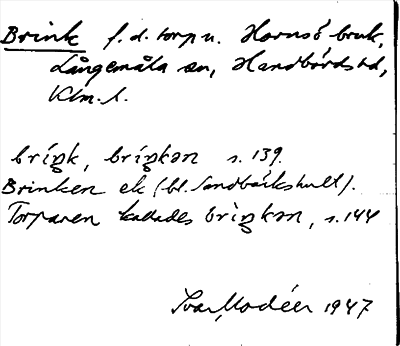 Brink f. d. torp u. Hornsö bruk,
Långemåla sn, Handbörds hd,
Klm. l.
briŋk, briŋkən s. 139.
Brinken ek (bl. Sandbäckshult).
Torparen kallades briŋkən, s. 144
Ivar Modéer 1947